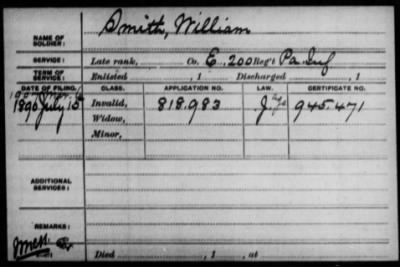 NAME OF SOLDIER: Smith, William
SERVICE: Late rank, Co. E, 200 Reg't Pa Inf
TERM OF SERVICE: Enlisted , 1 Discharged , 1
DATE OF FILING. CLASS. APPLICATION NO. LAW. CERTIFICATE NO.
1890 July 15 Invalid, 818.983 945.471
Widow,
Minor,
ADDITIONAL SERVICES:
REMARKS:
Died , 1 , at